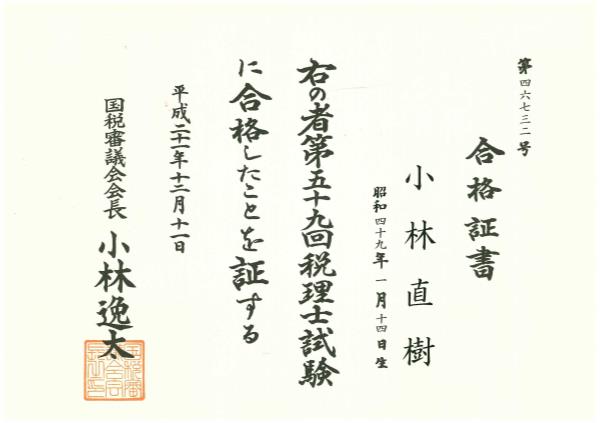 第四六七三二号
合格証書
小林直樹
昭和四十九年一月十四日生
右の者第五十九回税理士試験
に合格したことを証する
平成二十一年十二月十一日
国税審議会会長 小林逸太
国税審議会会長之印